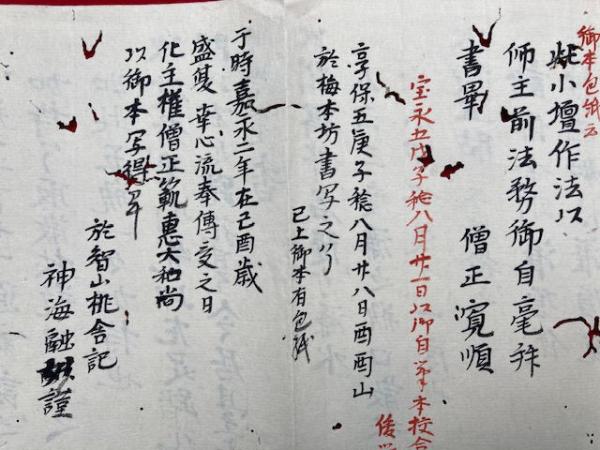 御本包紙云
此小壇作法以
師主前法務御自毫
書畢　僧正寛順
宝永五戊子稔八月廿一日以御自筆本校合
享保五庚子稔八月廿八日酉酉山
於梅本坊書写之了
已上御本有包紙
于時嘉永二年在己酉歳
盛夏幸心流奉傳受之日
化主権僧正範惠大和尚
以御本写得
於智山桃舎記
神海融謹